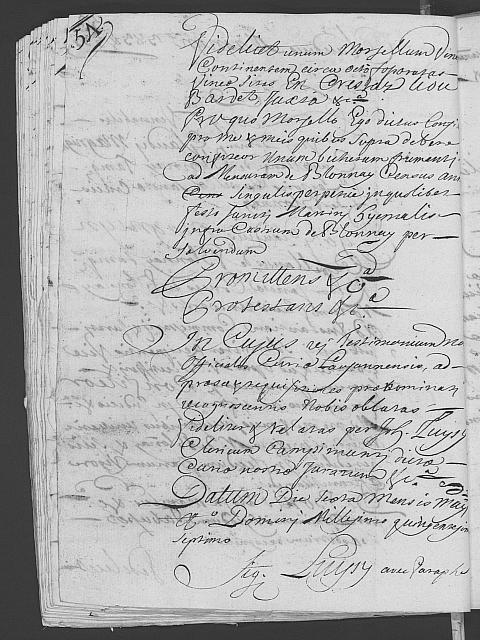 54
Videlicet unum Morsellum Vinee
Continentem circa octo foporatas
Vinee sitas En Cressaz aou
Bardet, Juxta &ca
Pro quo Morsello Ego dictus Confi
pro me & meis quibus supra debere
confiteor Unum bicherum frumenti
ad Mensuram de Blonnay Census an
singulis perpetue in quolibet
festo Martini hyemalis
infra Castrum de Blonnay per
solvendum
Promittens &ca
Protestans &ca
In Cujus rej testimonium nos
Officialis Curie Lausannensis, ad
preces & requisitiones prenominati
recognoscentis Nobis oblatas
fideliter & relatas per Joh. Puysy
Clericum
nostre Juratum &ca
Datum Die sexta Mensis Maij
Domini Millesimo quingentesimo
septimo
Sig. Puysy avec Paraphe